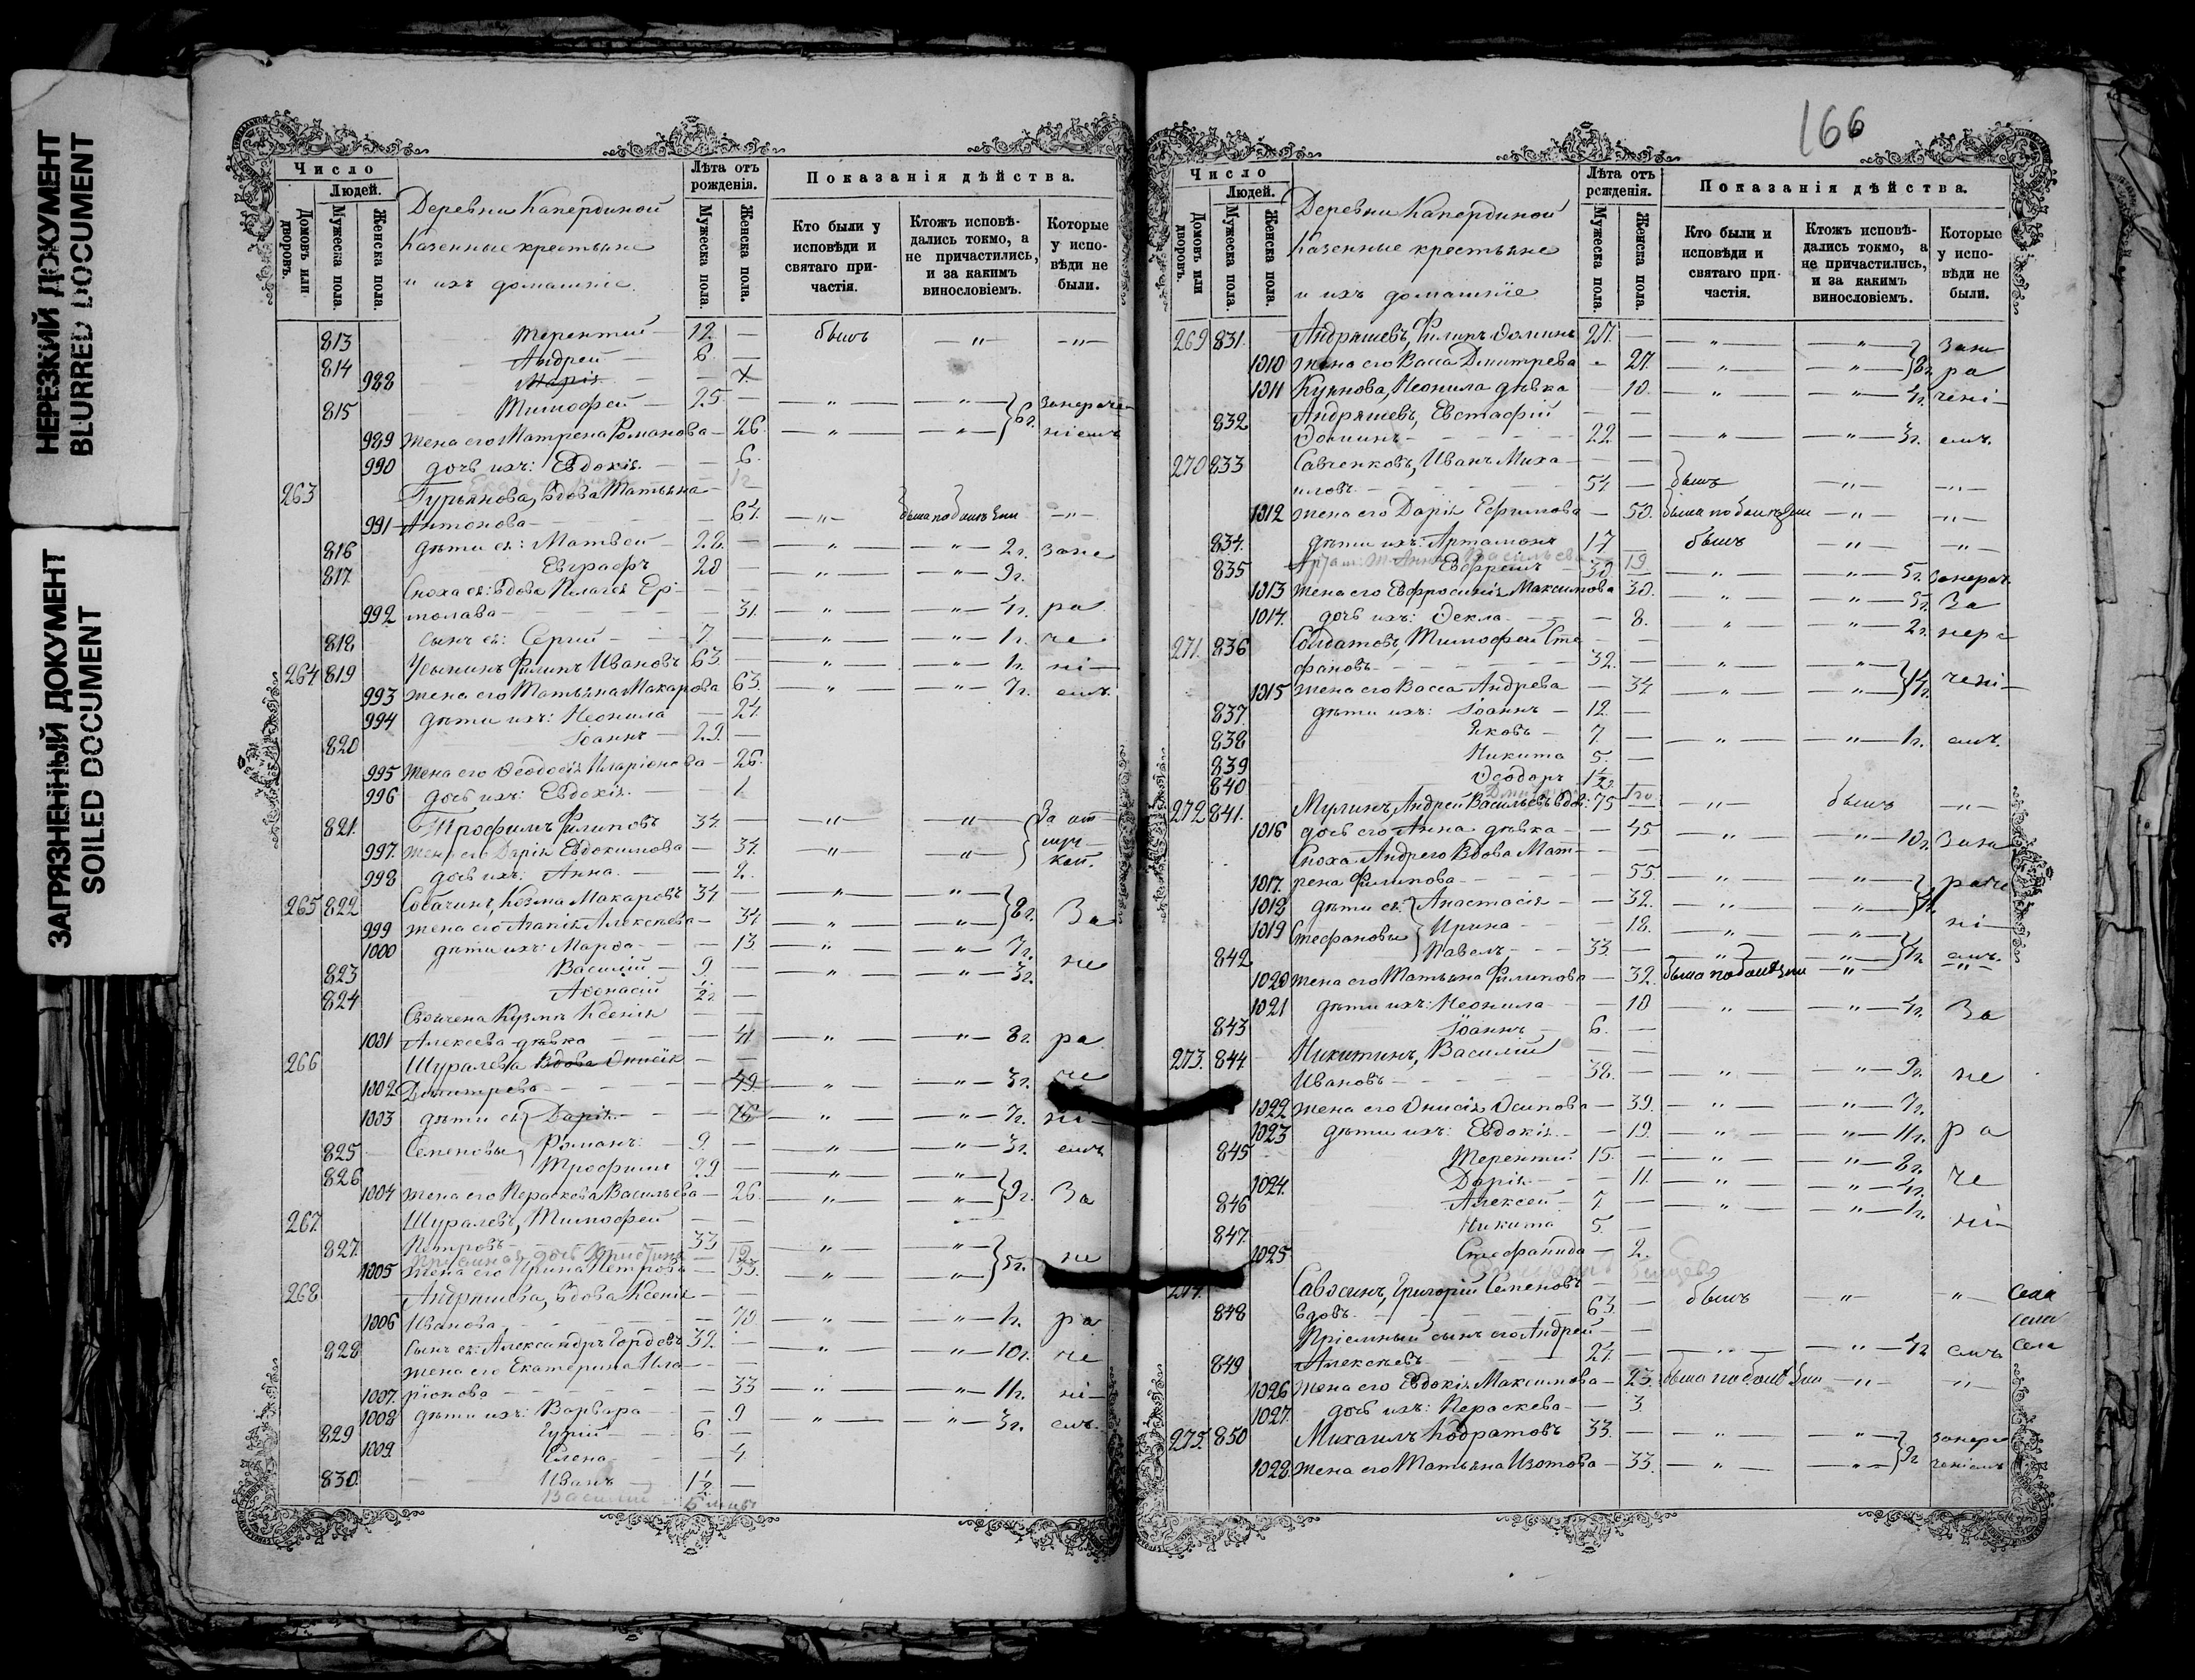 НЕРЕЗКИЙ ДОКУМЕНТ
BLURRED DOCUMENT
ЗАГРЯЗНЕННЫЙ ДОКУМЕНТ
SOILED DOCUMENT
Число
Людей.
Домовъ или дворовъ.
Мужеска пола.
Женска пола.
Деревни Капердиной
Казенные крестьяне
и ихъ домашніе.
Лѣта отъ рожденія.
Мужеска пола.
Женска пола.
Показанія дѣйства.
Кто были у исповѣди и святаго причастія.
Ктожъ исповѣдались токмо, а не причастились, и за какимъ винословіемъ.
Которые у исповѣди не были.
813 Терентій 12 — былъ — " — — " —
814 Андрей 6. —
988 Марія
815 Тимофей 25 — " — " — 6 г.
989 жена его Матрена Романова — 26. — " — " —
990 дочь ихъ: Евдокія — 6.
263 Гурьянова, вдова Татьяна
991 Антонова — 64.
816 дѣти ея: Матвей 22. — " — " — 2 г.
817 Евграфъ 20 — " — " — 9 г.
Сноха ея: вдова Пелагея Ер-
992 молава — 31. — " — " — ра
818 сынъ ея: Сергій 7. — " — " — 1 г. че
264 819 Филипъ Ивановъ 63. — " — " — 1 г. ні
993 жена его Татьяна Макарова 63. — " — " — 7 г. емъ.
994 дѣти ихъ: Неонила — 24.
820 Іоаннъ 29. —
995 жена его Ѳеодосія Иларіонова — 26.
996 дочь ихъ: Евдокія — 1
821. Трофимъ Филиповъ 34. — " — " — За от
997. жена его Дарія Евдокимова — 34. — " — " — луч
998 дочь ихъ: Анна — 2. кой.
265 822 Собачинъ, Козма Макаровъ 34 — " — " —
999 жена его Агапія Алексеева — 34. — " — " — 8 г. За
1000 дѣти ихъ: Марѳа — 13. — " — " — 7 г.
823 Василій 9. — " — " — 3 г. не
824 Аѳонасій
Свояченa Кузмы Ксенія
1001 Алексеева дѣвка — 41 — " — " — 8 г. ра
266 Шуралева вдова Онисія
1002 Димитрева — 49. — " — " — 3 г. че
1003 дѣти ея Дарія — 16 — " — " — 7 г. ні
825 Семеновы Романъ: 9. — " — " — 3 г. емъ
826 Трофимъ 29 — " — " —
1004 жена его Параскева Васильева — 26. — " — " — 9 г. За
267. Шуралевъ, Тимофей
827. Петровъ 33 — " — " —
1005 жена его Ирина Петрова — 33. — " — " — 5 г. не
268 Андряшева, вдова Ксенія
1006 Иванова — 70. — " — " — 1 г. ра
828 Сынъ ея: Александръ Гордѣевъ 32 — " — " — 10 г. че
жена его Екатерина Ила-
1007. ріонова — 33 — " — " — 11 г. ні
1008 дѣти ихъ: Варвара — 9 — " — " — 3 г. емъ.
829 Гурій 6. —
1009. Елена — 4.
830. Иванъ 1½ —
Василій
166
Число
Людей.
Домовъ или дворовъ.
Мужеска пола.
Женска пола.
Деревни Капердиной
Казенные крестьяне
и ихъ домашніе
Лѣта отъ рожденія.
Мужеска пола.
Женска пола.
Показанія дѣйства.
Кто были и исповѣди и святаго причастія.
Ктожъ исповѣдались токмо, а не причастились, и за какимъ винословіемъ.
Которые у исповѣди не были.
269 831. Андряшевъ, Филипъ Ѳоминъ 27. — " — " —
1010 жена его Васса Дмитрева — 27. — " — " — 8 г. ра
1011 Неонила дѣвка — 10. — " — " — чені
832 Андряшевъ, Евстафій
Ѳоминъ 22. — " — " — 3 г. емъ.
270 833 Савченковъ, Иванъ Миха-
иловъ 54 — былъ — " — — " —
1012 жена его Дарія Ефимова — 50. — " — — " —
834. дѣти ихъ: Артамонъ 17 — былъ — " — — " —
835 Ефремъ 30 — " — " — 5 г.
1013 жена его Евфросинія Максимова 30. — " — " — За
1014. дочь ихъ: Ѳекла — 8. — " — " — 2 г.
271. 836 Солдатовъ, Тимофей Сте
фановъ 32. — " — " —
1015 жена его Васса Андрева — 34 — " — " — чені
837. дѣти ихъ: Іоаннъ 12. —
838 Яковъ 7 — " — " — 1 г. емъ.
839 Никита 5. —
840 Ѳеодоръ 1½
272 841. Мулинъ, Андрей Васильевъ вдов: 75 — " — былъ — " —
1016 дочь его Анна дѣвка — 45 — " — " — 10 г.
Сноха Андрего Вдова Мат-
1017. рена Филипова — 55. — " — " —
1018 дѣти ея Анастасія — 32. — " — " —
1019 Стефановы Ирина — 18. — " — " — ні
842 Павелъ 33. — " — " — емъ.
1020 жена его Татьяна Филипова — 32. — " — " —
1021 дѣти ихъ: Неонила — 10 — " — " — За
843 Іоаннъ 6. —
273. 844. Никитинъ, Василій
Ивановъ 38. — " — " — 9 г. не
1022 жена его Онисія Осипова — 39. — " — " — 7 г.
1023 дѣти ихъ: Евдокія — 19. — " — " — 11 г. ра
845 Терентій 15. — " — " — 8 г.
1024. Дарія — 11. — " — " — че
846 Алексей 7. — " — " — 1 г.
847. Никита 5. — ні
1025 Стефанида — 2.
274. Савосинъ, Григорій Семеновъ
848 вдовъ 63. — былъ — " — "
Пріемный сынъ его Андрей
849 Алексѣевъ 24. — " — " — емъ
1026 жена его Евдокія Максимова — 23. — " — "
1027. дочь ихъ: Параскева — 3.
275. 850 Михаилъ Кодратовъ 33. — " — " —
1028. жена его Татьяна Изотова — 33. — " — " — 9 г. ченіемъ